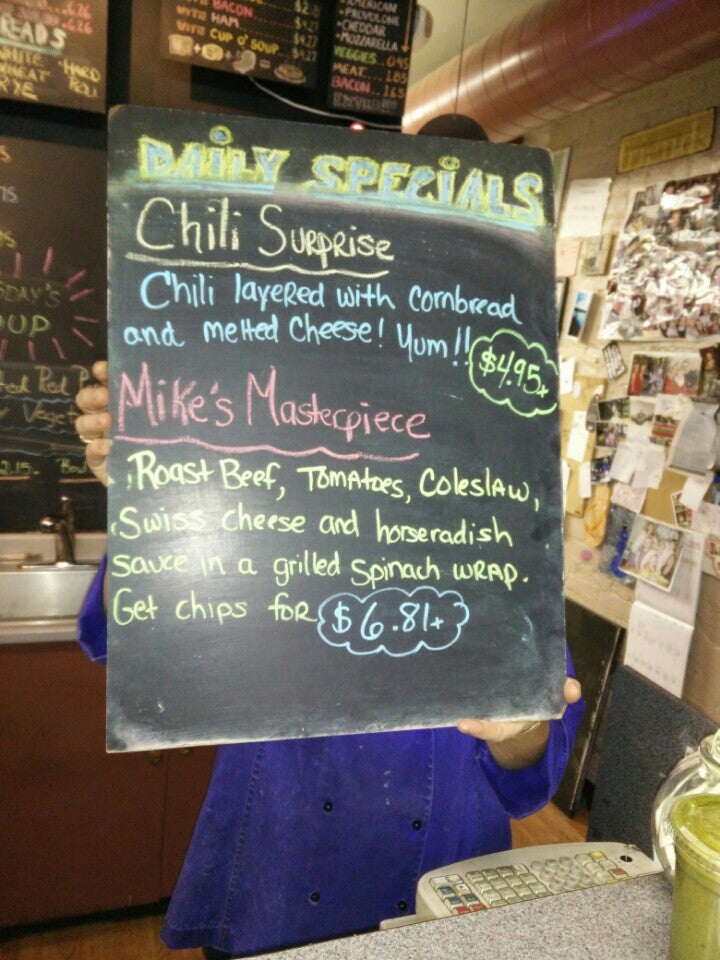 READS
WHEAT
RYE
HARD
.626
.626
BACON
WITH HAM $4.27
WITH CUP O' SOUP $4.27
AMERICAN
•PROVOLONE
•CHEDDAR
•MOZZARELLA
VEGGIES .095
MEAT 1.85
BACON 1.65
DAILY SPECIALS
Chili SURPRISE
Chili layered with Cornbread
and melted Cheese! Yum!!
$4.95+
Mike's Masterpiece
Roast Beef, Tomatoes, Coleslaw,
Swiss cheese and horseradish
sauce in a grilled Spinach WRAP.
Get chips for $6.81+
DAY'S
OUP
Red